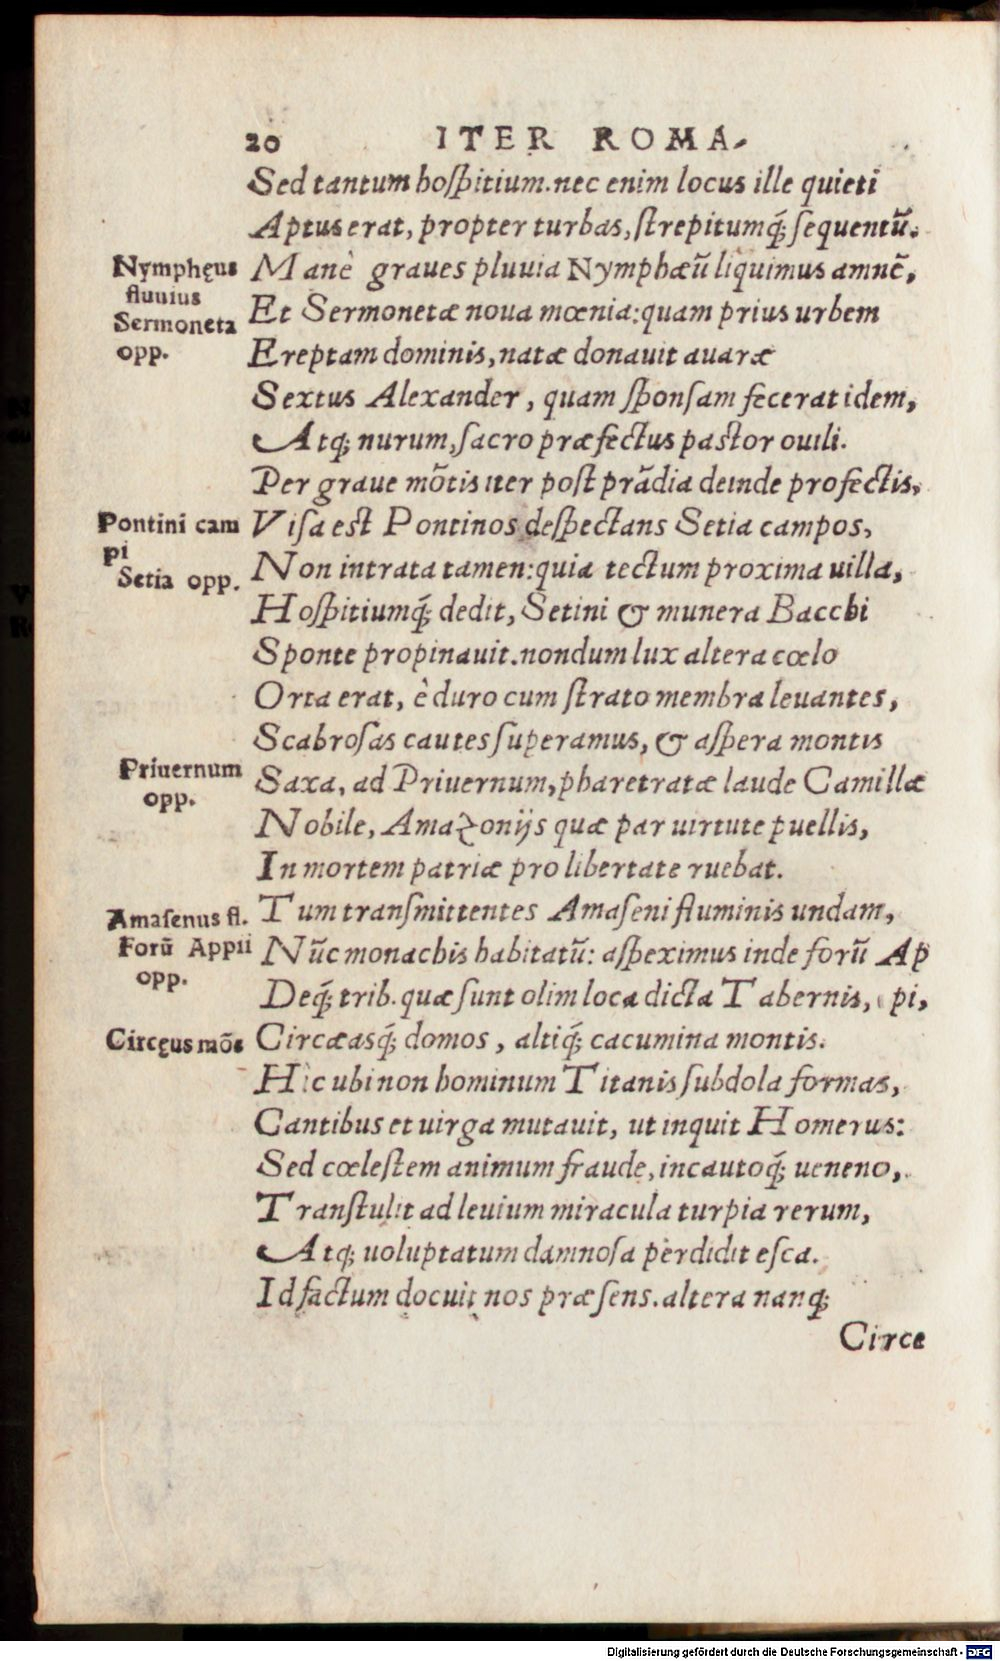 20 ITER ROMA-
Sed tantum hoſpitium. nec enim locus ille quieti
Aptus erat, propter turbas, ſtrepitumq́; ſequentũ.
Nymphęus
fluuius
Sermoneta
opp.
Manè graues pluuia Nymphæũ liquimus amnẽ,
Et Sermonetæ noua mœnia: quam prius urbem
Ereptam dominis, natæ donauit auaræ
Sextus Alexander, quam ſponſam fecerat idem,
Atq; nurum, ſacro præfectus paſtor ouili.
Per graue mõtis iter poſt prãdia deinde profectis,
Pontini cam
pi
Setia opp.
Viſa est Pontinos deſpectans Setia campos,
Non intrata tamen: quia tectum proxima uilla,
Hoſpitiumq́; dedit, Setini & munera Bacchi
Sponte propinauit. nondum lux altera cœlo
Orta erat, è duro cum ſtrato membra leuantes,
Scabroſas cautes ſuperamus, & aſpera montis
Priuernum
opp.
Saxa, ad Priuernum, pharetratæ laude Camillæ
Nobile, Amazonijs quæ par uirtute puellis,
In mortem patriæ pro libertate ruebat.
Amaſenus fl.
Forũ Appii
opp.
Tum tranſmittentes Amaſeni fluminis undam,
Nũc monachis habitatũ: aſpeximus inde forũ Ap
Deq́; trib. quæ ſunt olim loca dicta Tabernis, pi,
Circęus mõs
Circæasq́; domos, altiq́; cacumina montis.
Hic ubi non hominum Titanis ſubdola formas,
Cantibus et uirga mutauit, ut inquit Homerus:
Sed cœleſtem animum fraude, incautoq́; ueneno,
Tranſtulit ad leuium miracula turpia rerum,
Atq; uoluptatum damnoſa perdidit eſca.
Id factum docuit nos præſens. altera nanq;
Circe
Digitalisierung gefördert durch die Deutsche Forschungsgemeinschaft - DFG